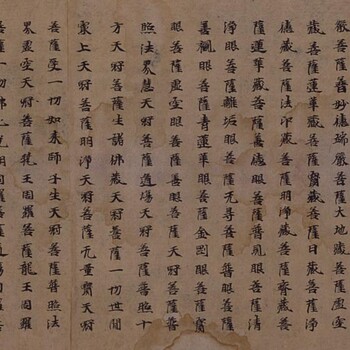 嚴菩薩普好德端嚴菩薩大地藏菩薩虛空
藏菩薩蓮華藏菩薩寶藏菩薩日藏菩薩淨
德藏菩薩法印藏菩薩明淨藏菩薩齊藏菩
薩蓮華藏菩薩善德眼菩薩普見眼菩薩清
淨眼菩薩離垢眼菩薩无导菩薩普眼菩薩
善觀眼菩薩青蓮華眼菩薩金剛眼菩薩寶
眼菩薩虛空眼菩薩善眼菩薩天冠菩薩普
照法界慧天冠菩薩道場天冠菩薩普照十
方天冠菩薩生諸佛藏天冠菩薩一切世間
最上天冠菩薩明淨天冠菩薩无量寶天冠
菩薩受一切如来師子坐天冠菩薩普照法
界虛空天冠菩薩龍王周羅菩薩龍王周羅
菩薩一切